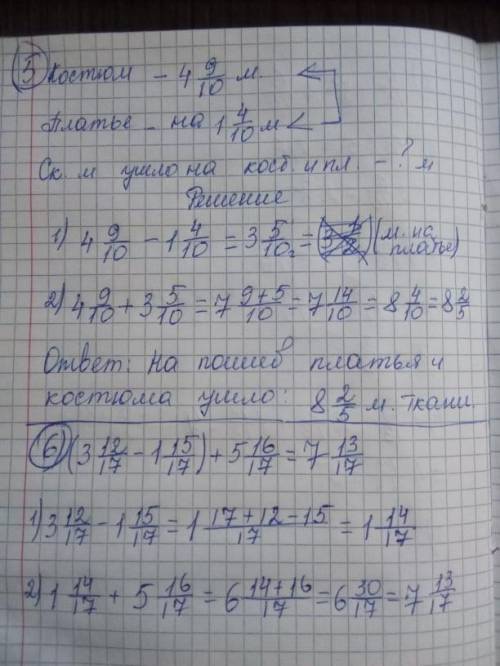 5 Костюм – 4 9/10 м.
Платье – на 1 4/10 м <
Ск. м ушло на кост. и пл. – ? м
Решение
1) 4 9/10 – 1 4/10 = 3 5/10 = (м. на платье)
2) 4 9/10 + 3 5/10 = 7 9+5/10 = 7 14/10 = 8 4/10 = 8 2/5
Ответ: на пошив платья и
костюма ушло: 8 2/5 м. ткани.
6 (3 12/17 – 1 15/17) + 5 16/17 = 7 13/17
1) 3 12/17 – 1 15/17 = 1 17+12–15/17 = 1 14/17
2) 1 14/17 + 5 16/17 = 6 14+16/17 = 6 30/17 = 7 13/17